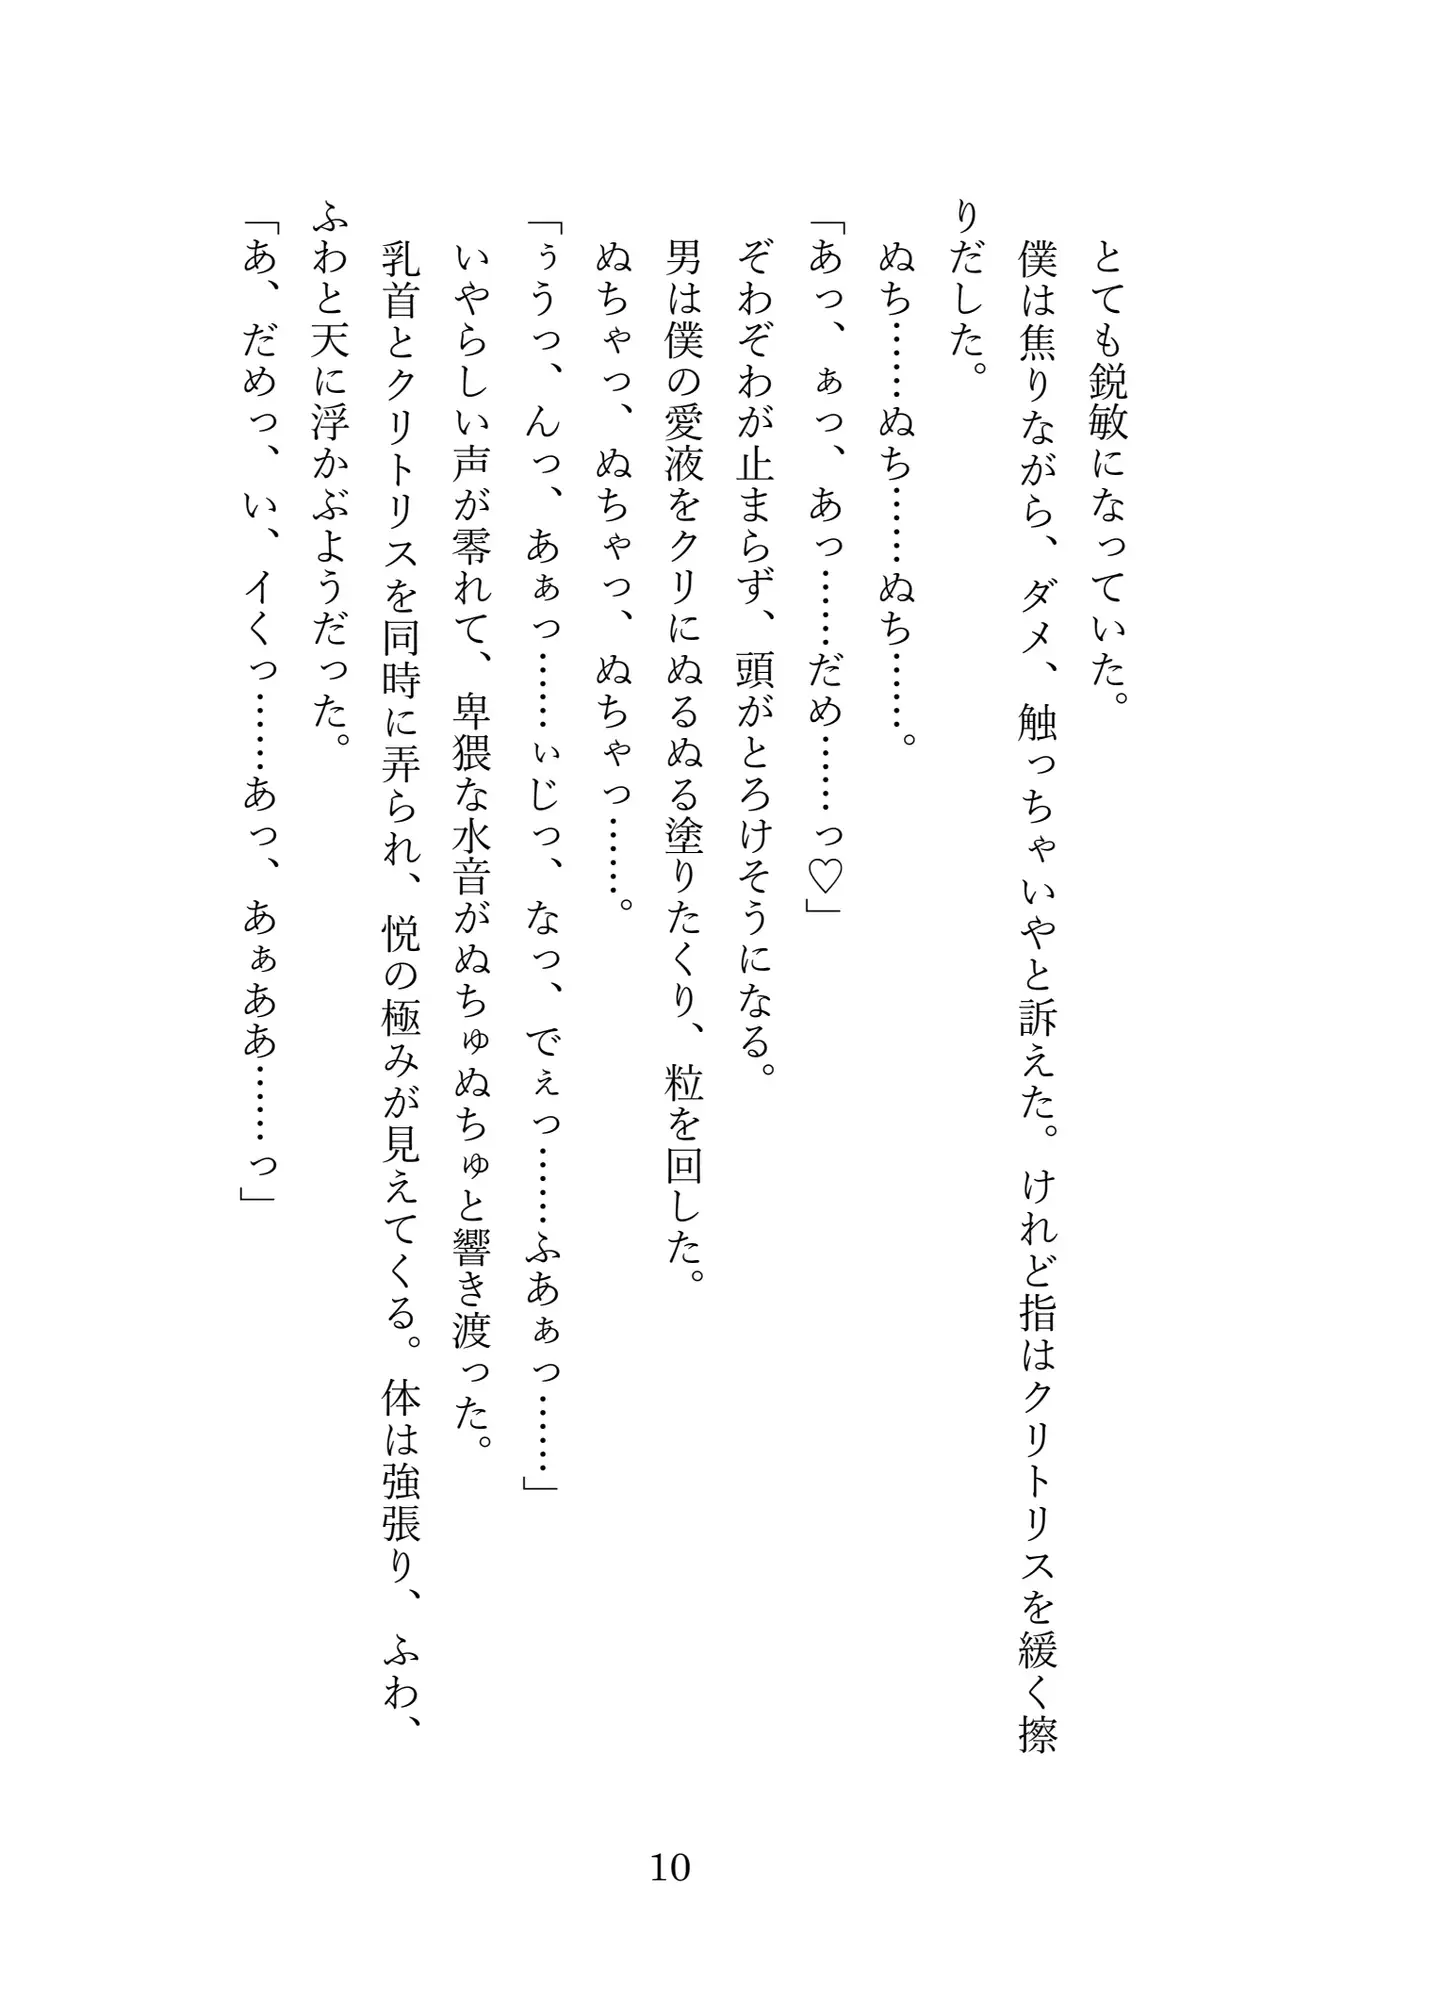 とても鋭敏になっていた。
僕は焦りながら、ダメ、触っちゃいやと訴えた。けれど指はクリトリスを緩く擦
りだした。
ぬち……ぬち……ぬち……。
「あっ、ぁっ、あっ……だめ……っ♡」
ぞわぞわが止まらず、頭がとろけそうになる。
男は僕の愛液をクリにぬるぬる塗りたくり、粒を回した。
ぬちゃっ、ぬちゃっ、ぬちゃっ……。
「ぅうっ、んっ、あぁっ……ぃじっ、なっ、でぇっ……ふあぁっ……」
いやらしい声が零れて、卑猥な水音がぬちゅぬちゅと響き渡った。
乳首とクリトリスを同時に弄られ、悦の極みが見えてくる。体は強張り、ふわ、
ふわと天に浮かぶようだった。
「あ、だめっ、い、イくっ……あっ、あぁああ……っ」
10